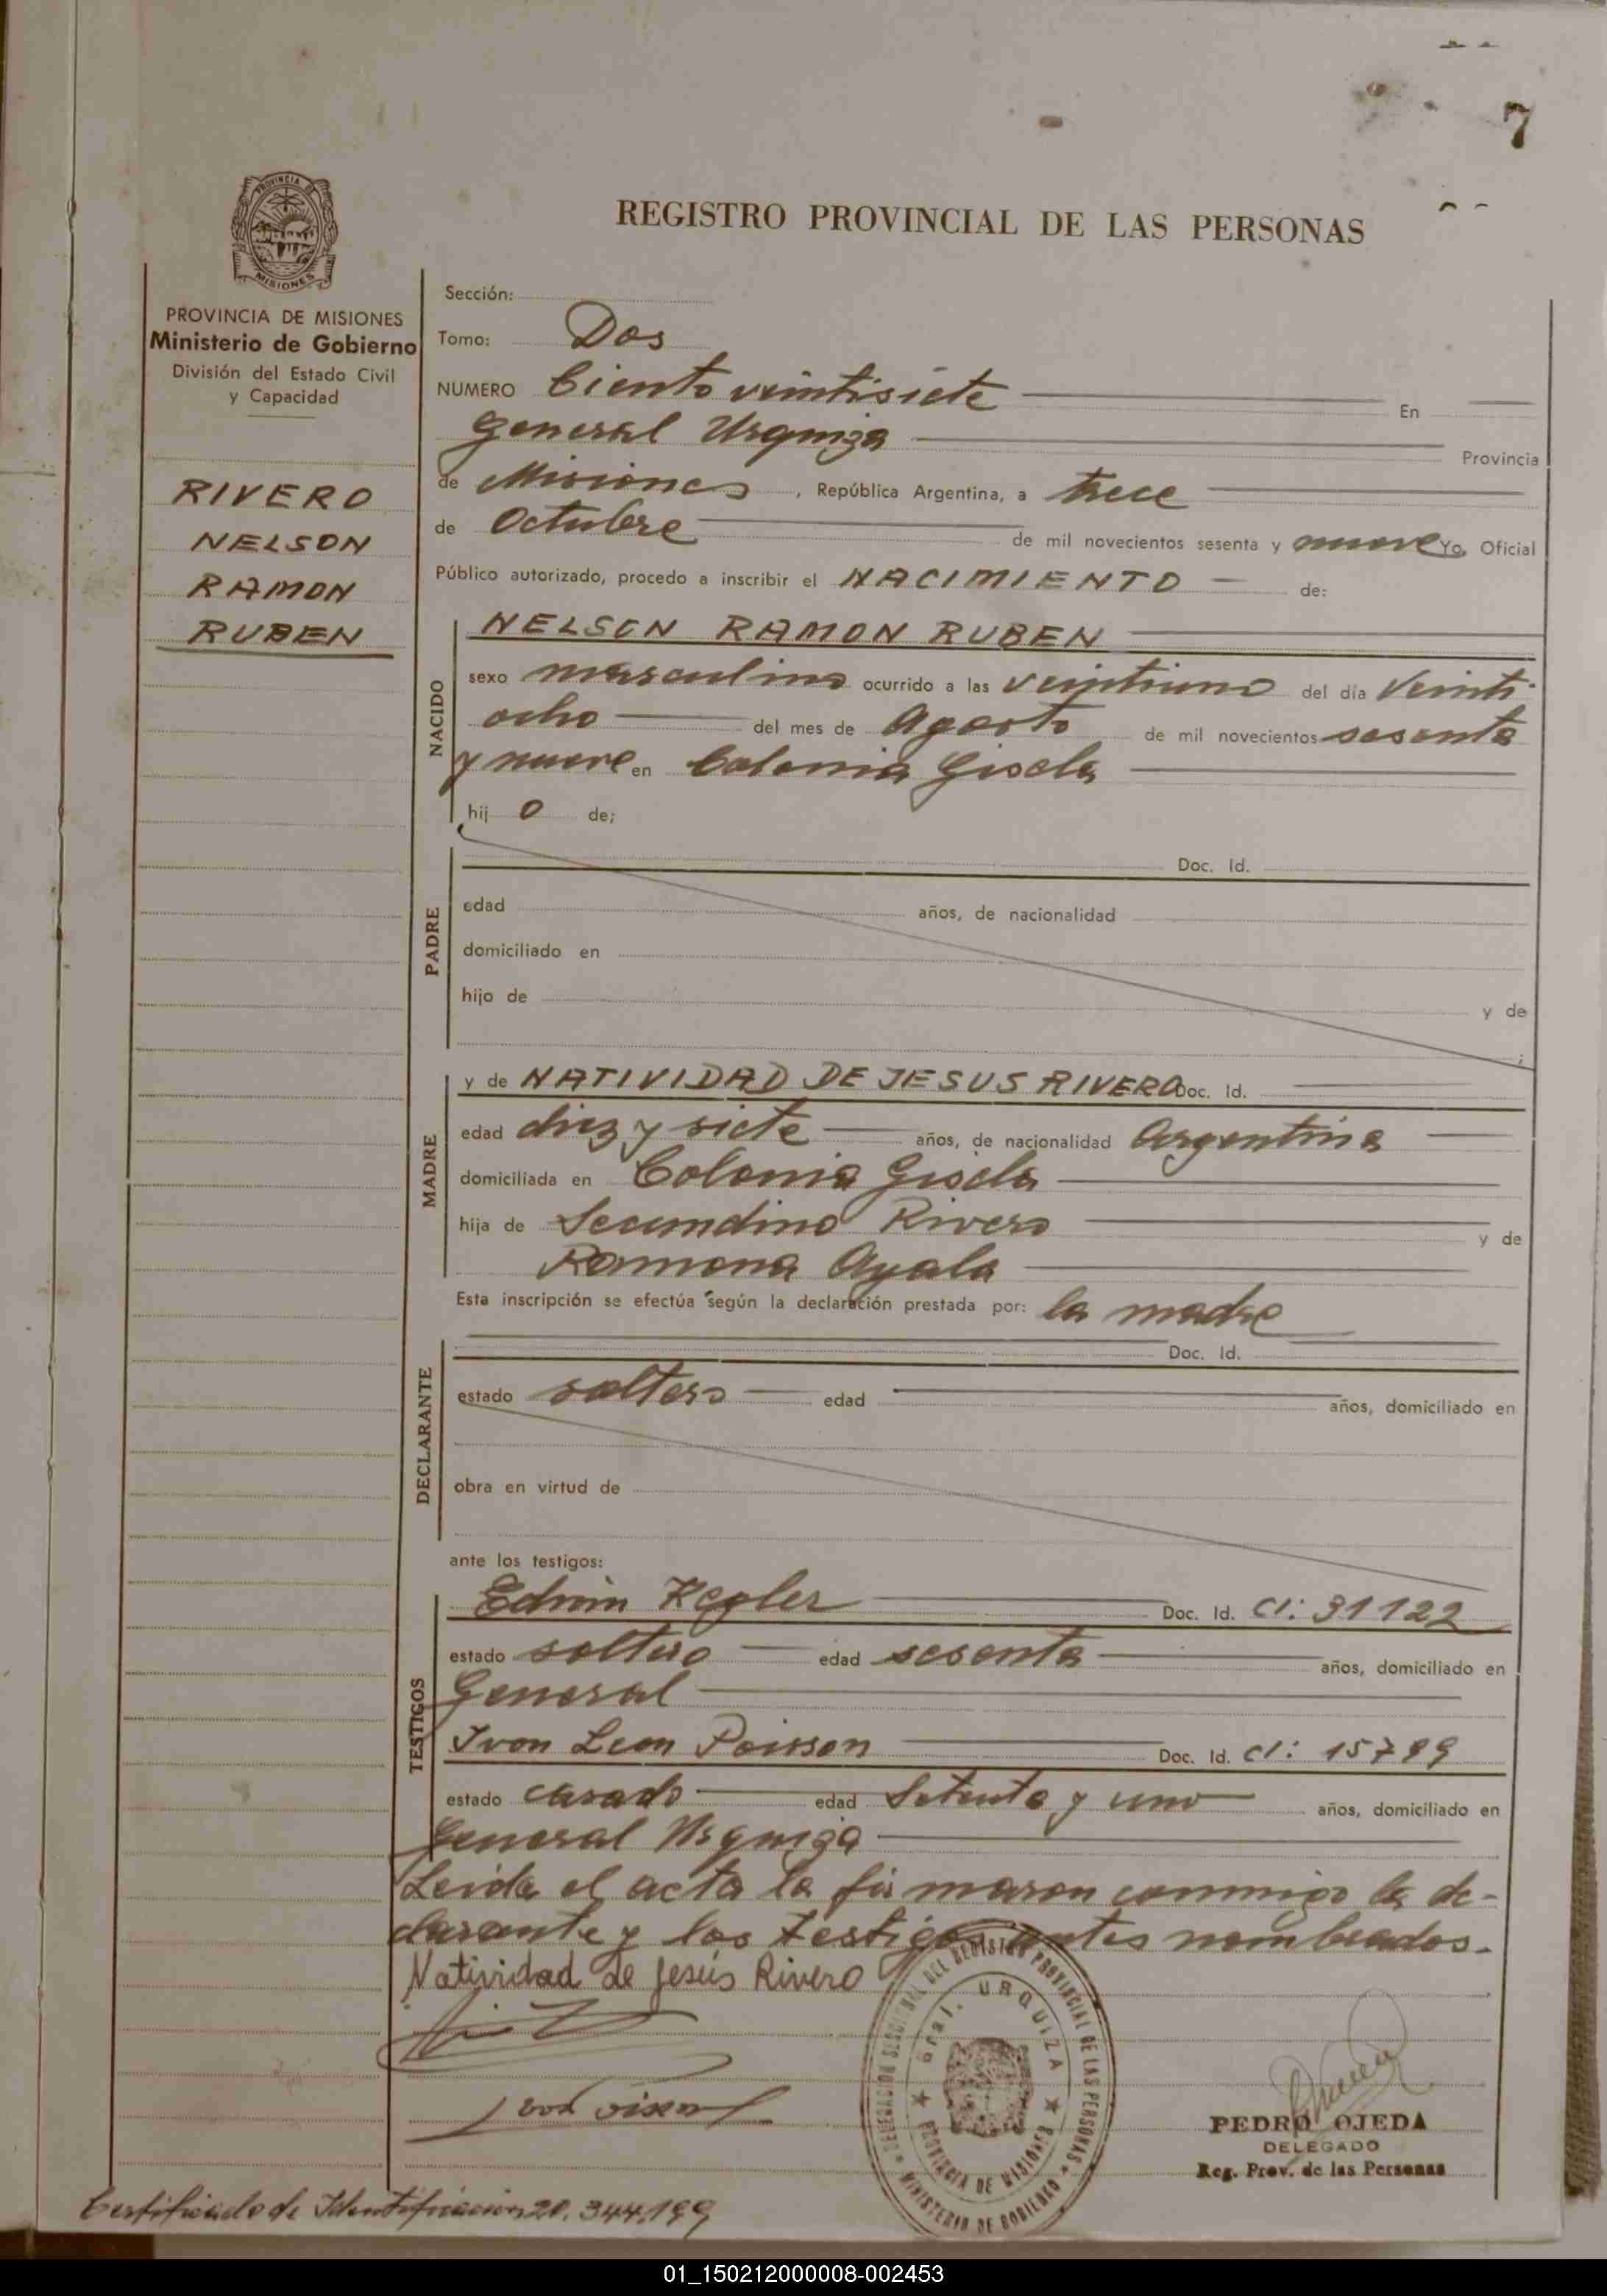 7
PROVINCIA DE
MISIONES
REGISTRO PROVINCIAL DE LAS PERSONAS
PROVINCIA DE MISIONES
Ministerio de Gobierno
División del Estado Civil
y Capacidad
RIVERO
NELSON
RAMON
RUBEN
Sección:
Tomo: Dos
NUMERO Ciento veintisiete En
General Urquiza Provincia
de Misiones, República Argentina, a trece
de Octubre de mil novecientos sesenta y nueve Yo, Oficial
Público autorizado, procedo a inscribir el NACIMIENTO de:
NACIDO
NELSON RAMON RUBEN
sexo masculino ocurrido a las veintiuno del día Veinti-
ocho del mes de Agosto de mil novecientos sesenta
y nueve en Colonia Gisela
hij o de;
PADRE
Doc. Id.
edad años, de nacionalidad
domiciliado en
hijo de y de
;
MADRE
y de NATIVIDAD DE JESUS RIVERO Doc. Id.
edad diez y siete años, de nacionalidad Argentina
domiciliada en Colonia Gisela
hija de Secundino Rivero y de
Ramona Ayala
Esta inscripción se efectúa según la declaración prestada por: la madre
DECLARANTE
Doc. Id.
estado soltero edad años, domiciliado en
obra en virtud de
ante los testigos:
TESTIGOS
Edwin Kegler Doc. Id. CI: 31122
estado soltero edad sesenta años, domiciliado en
General
Ivon Leon Poisson Doc. Id. CI: 15789
estado casado edad Setenta y uno años, domiciliado en
General Urquiza
Leida el acta la firmaron conmigo la de-
clarante y los testigos antes nombrados.
Natividad de Jesús Rivero
DELEGACION SECCIONAL DEL REGISTRO PROVINCIAL DE LAS PERSONAS
MINISTERIO DE GOBIERNO
Gral. URQUIZA
PROVINCIA DE MISIONES
PEDRO OJEDA
DELEGADO
Reg. Prov. de las Personas
Certificado de Identificacion 20.344.199
01_150212000008-002453